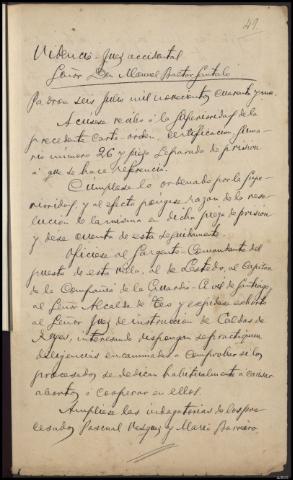 49
Providencia Juez accidental
Señor Don Manuel Pastor
Padrón seis Julio mil novecientos cuarenta y uno.
Acúsese recibo a la Superioridad de la
precedente carta-orden, certificación, suma-
rio número 26 y pieza separada de prisión
a que se hace referencia.
Cúmplase lo ordenado por la Supe-
rioridad, y al efecto póngase razón de la reso-
lución de la misma en dicha pieza de prisión
y dese cuenta de esta seguidamente.
Ofíciese al Sargento-Comandante del
puesto de esta villa, al de Lestedo, al Capitán
de la Compañía de la Guardia Civil de Santiago,
al Señor Alcalde de Teo y expídase exhorto
al Señor Juez de instrucción de Caldas de
Reyes, interesando dispongan se practiquen
diligencias encaminadas a comprobar si los
procesados se dedican habitualmente a causar
abortos o cooperar en ellos.
Amplíese las indagatorias de los pro-
cesados Pascual Vazquez y María Barreiro